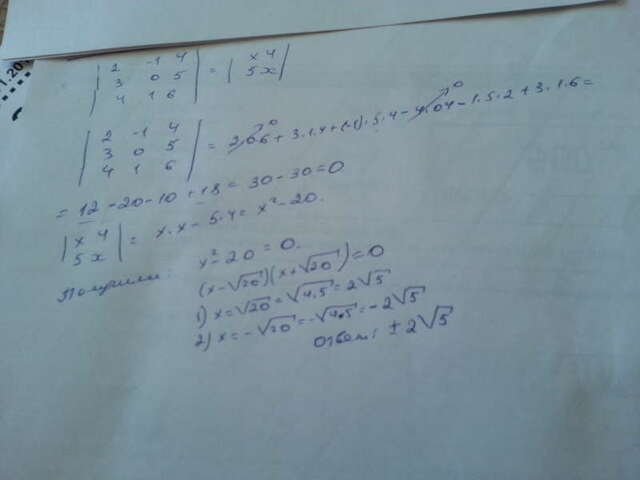 | 2 -1 4 | = | x 4 |
| 3 0 5 | | 5 x |
| 4 1 6 |
| 2 -1 4 |
| 3 0 5 | = 2·0·6 + 3·1·4 + (-1)·5·4 - 4·0·4 - 1·5·2 + 3·1·6 =
| 4 1 6 |
= 12 - 20 - 10 + 18 = 30 - 30 = 0
| x 4 |
| 5 x | = x·x - 5·4 = x² - 20.
Получили: x² - 20 = 0.
(x - √20)(x + √20) = 0
1) x = √20 = √4·5 = 2√5
2) x = -√20 = -√4·5 = -2√5
Ответ: ± 2√5